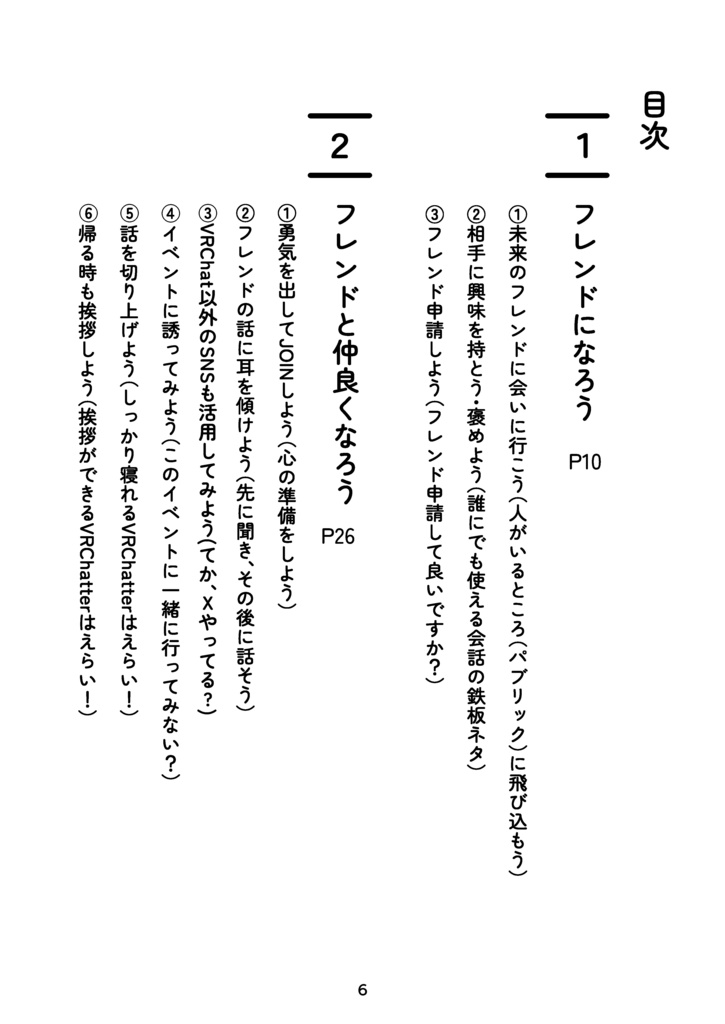 目次
1
フレンドになろう
P10
①未来のフレンドに会いに行こう(人がいるところ(パブリック)に飛び込もう)
②相手に興味を持とう・褒めよう(誰にでも使える会話の鉄板ネタ)
③フレンド申請しよう(フレンド申請して良いですか?)
2
フレンドと仲良くなろう
P26
①勇気を出してJOINしよう(心の準備をしよう)
②フレンドの話に耳を傾けよう(先に聞き、その後に話そう)
③VRChat以外のSNSも活用してみよう(てか、Xやってる?)
④イベントに誘ってみよう(このイベントに一緒に行ってみない?)
⑤話を切り上げよう(しっかり寝れるVRChatterはえらい!)
⑥帰る時も挨拶しよう(挨拶ができるVRChatterはえらい!)
6